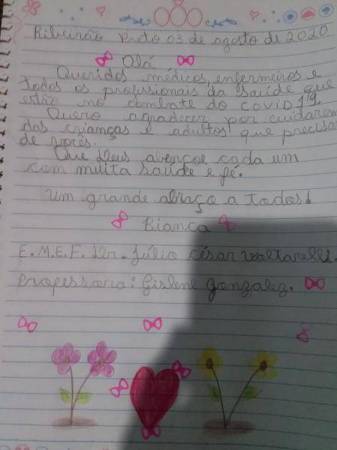 Ribeirão Preto 03 de agosto de 2020
Olá
Queridos médicos, enfermeiros e
todos os profissionais da saúde que
estão no combate do COVID19.
Quero agradecer por cuidarem
das crianças e adultos que precisam
de vocês.
Que Deus abençoe cada um
com muita saúde e fé.
Um grande abraço a todos!
Bianca
E.M.E.F. Dr. Júlio César Voltarelli.
Professora: Gislene Gonzalez.